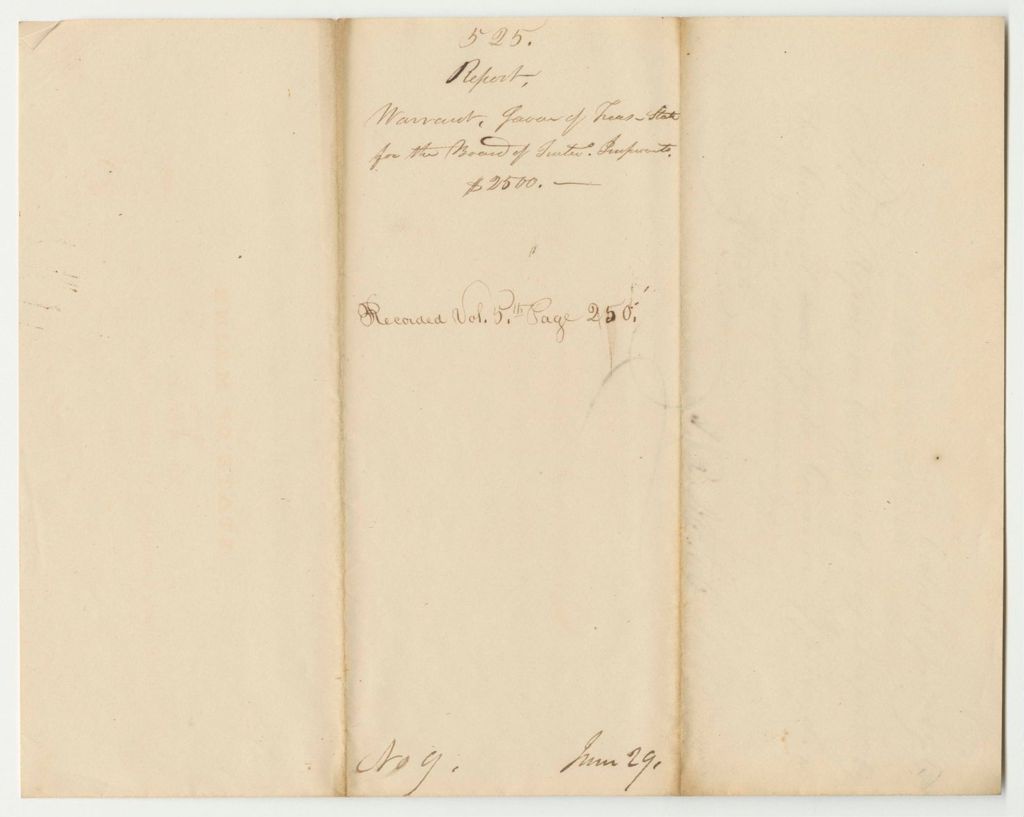 525.
Report,
Warrant, favor of Treas. State
for the Board of Inter. Improvmts.
$2500. —
Recorded Vol. 5.th Page 250.
No 9.
June 29.